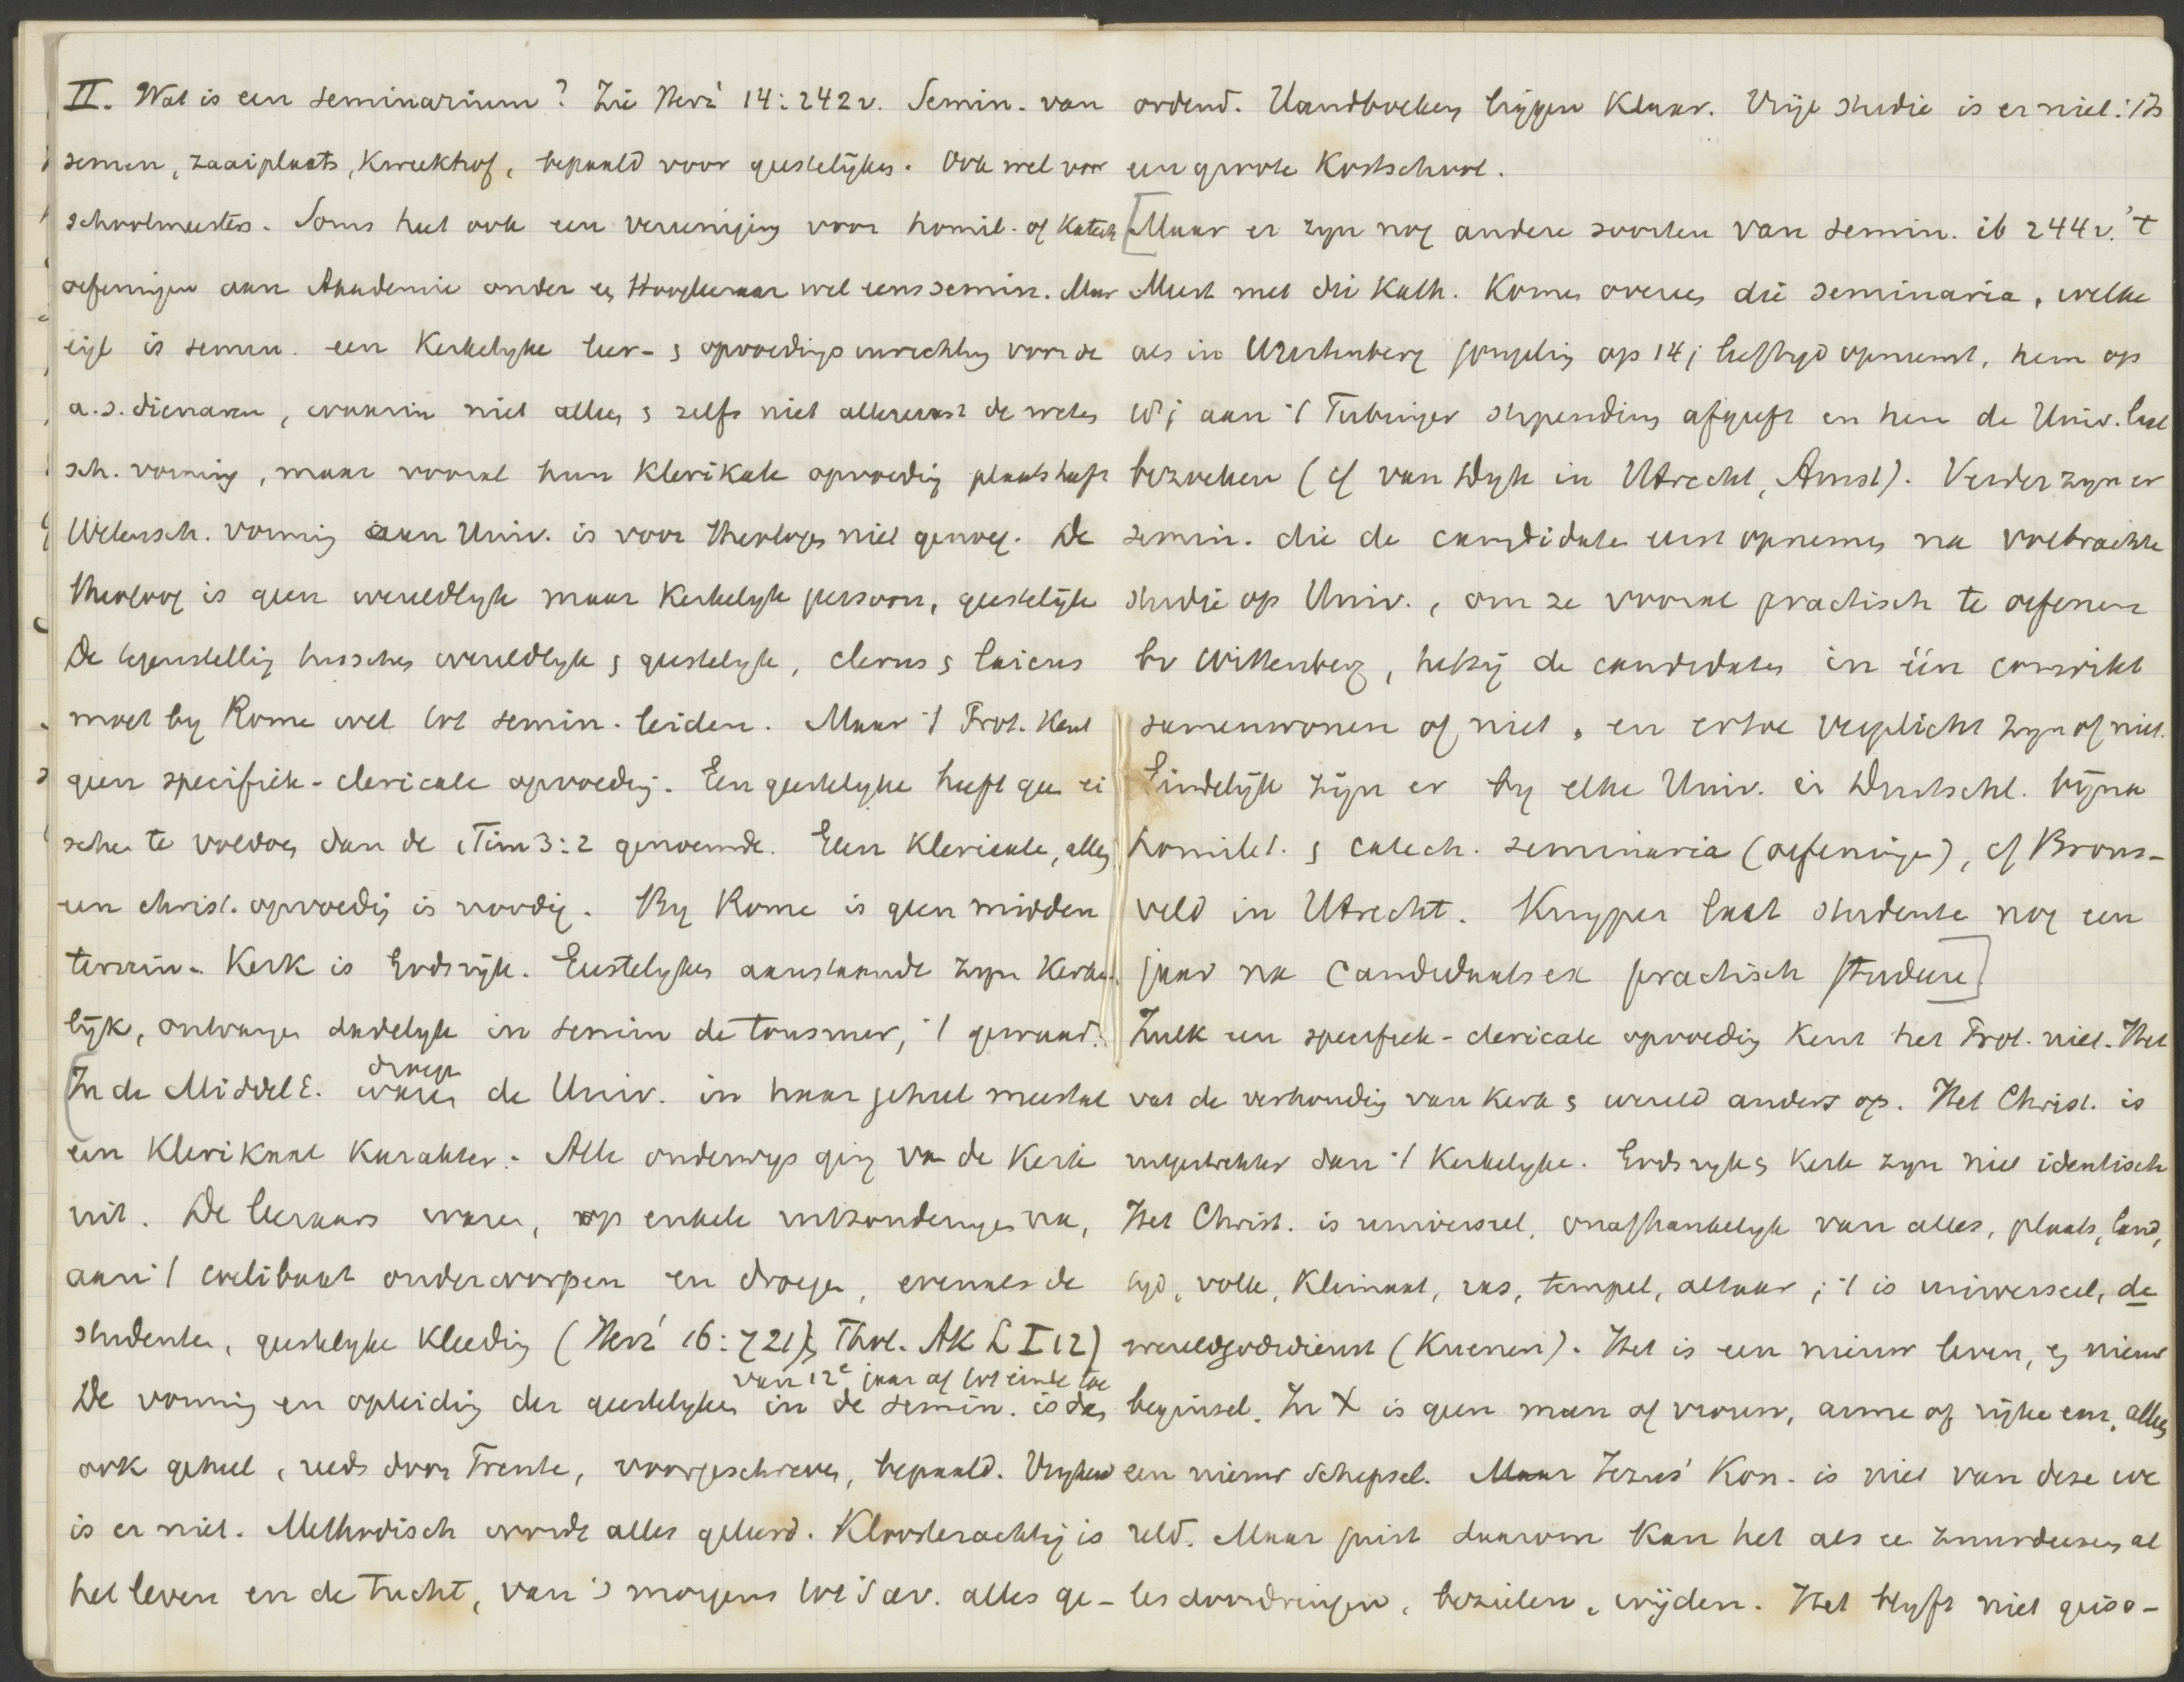 II. Wat is een seminarium? Zie Herz' 14:242v. Semin. van
semen, zaaiplaats, kweekhof, bepaald voor geestelijken. Ook wel voor
schoolmeesters. Soms heet ook een vereeniging voor homil. of katech
oefeningen aan Akademie onder een Hoogleeraar wel eens semin. Maar
eigl is semin. een Kerkelyke leer- & opvoedingsinrichting voor de
a.s. dienaren, waarin niet alleen & zelfs niet allereerst de weten
sch. vorming, maar vooral hun klerikale opvoeding plaats heeft
Wetensch. vorming aan Univ. is voor theologen niet genoeg. De
theoloog is geen wereldlyk maar Kerkelyk persoon, geestelijke
De tegenstelling tusschen wereldlyk & geestelyk, clerus & laicus
moet by Rome wel tot semin. leiden. Maar 't Prot. kent
geen specifiek-clericale opvoeding. Een geestelyke heeft geen ei
schen te voldoen dan de 1Tim 3:2 genoemde. Geen klericale, alleen
een christ. opvoeding is noodig. By Rome is geen midden
terrein. Kerk is Godsrijk. Geestelykes aanstaande zyn Kerke
lijk, ontvangen dadelyk in semin de tonsuur, 't gewaad.
[In de MiddelE. droegen de Univ. in haar geheel meestal
een klerikaal karakter. Alle onderwys ging van de Kerk
uit. De leeraars waren, op enkele uitzonderingen na,
aan 't coelibaat onderworpen en droegen, evenals de
studenten, geestelyke kleeding (Herz' 16:721), Thol. Ak L I 12)
De vorming en opleiding der geestelyken van 12e jaar af tot einde toe in de semin. is dan
ook geheel, reeds door Trente, voorgeschreven, bepaald. Vryheid
is er niet. Methodisch wordt alles geleerd. Kloosterachtig is
het leven en de tucht, van 's morgens tot 's av. alles ge-
ordend. Handboeken liggen klaar. Vrije studie is er niet: 't Is
een groote kostschool.
[Maar er zyn nog andere soorten van semin. ib 244v. 't
Meest met die kath. komen overeen die seminaria, welke
als in Würtenberg jongeling op 14j leeftyd opneemt, hem op
18j aan 't Tubinger stipendium afgeeft en hen de Univ. laat
bezoeken (cf van Dyk in Utrecht, Amst). Verder zyn er
semin. die de candidaten eerst opnemen na volbrachte
studie op Univ., om ze vooral practisch te oefenen
bv Wittenberg, hetzij de candidaten in één convikt
samenwonen of niet, en ertoe verplicht zyn of niet.
Eindelijk zijn er by elke Univ. in Duitschl. bijna
homilet. & catech. seminaria (oefeningen), cf Brons-
veld in Utrecht. Kuyper laat studenten nog een
jaar na candidaatsex practisch studeren]
Zulk een specifiek-clericale opvoeding kent het Prot. niet. Het
vat de verhouding van Kerk & wereld anders op. Het Christ. is
uitgestrekter dan 't Kerkelyke. Godsryk & Kerk zyn niet identisch
Het Christ. is universeel, onafhankelyk van alles, plaats, land,
tyd, volk, klimaat, ras, tempel, altaar; 't is universeel, de
wereldgodsdienst (Kuenen). Het is een nieuw leven, een nieuw
beginsel. In X is geen man of vrouw, arme of rijke enz, alleen
een nieuw schepsel. Maar Jezus' Kon. is niet van deze we
reld. Maar juist daarom kan het als een zuurdeesem al
les doordringen, bezielen, wijden. Het blyft niet geiso-